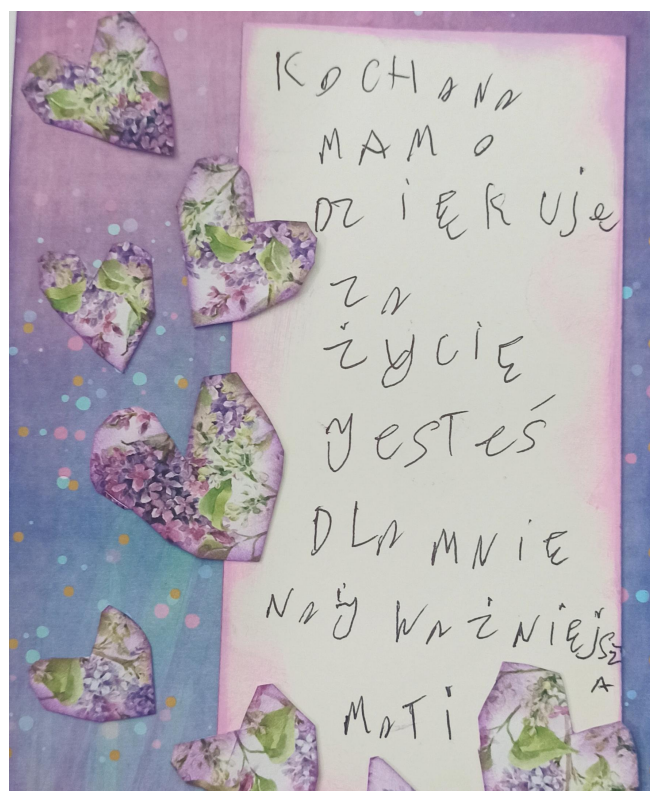 KOCHANA
MAMO
DZIĘKUJĘ
ZA
ŻYCIĘ
YESTEŚ
DLA MNIE
NAY WAŻNIĘJSZ
A
MATI